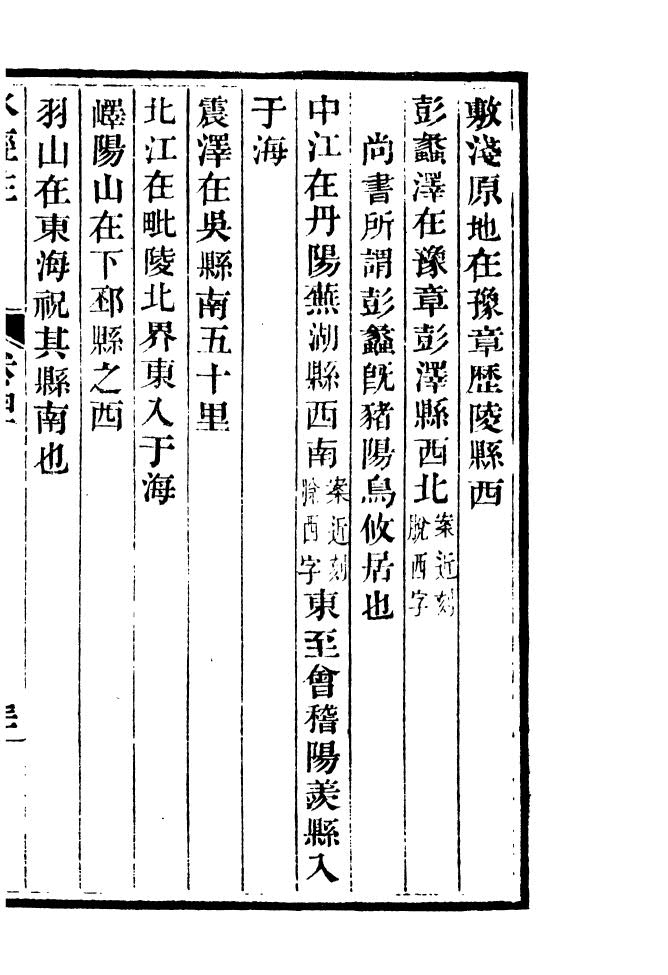 敷淺原地在豫章歷陵縣西
彭蠡澤在豫章彭澤縣西北案近刻脫西字
尚書所謂彭蠡旣豬陽鳥攸居也
中江在丹陽蕪湖縣西南案近刻脫西字東至會稽陽羨縣入
于海
震澤在吳縣南五十里
北江在毗陵北界東入于海
嶧陽山在下邳縣之西
羽山在東海祝其縣南也